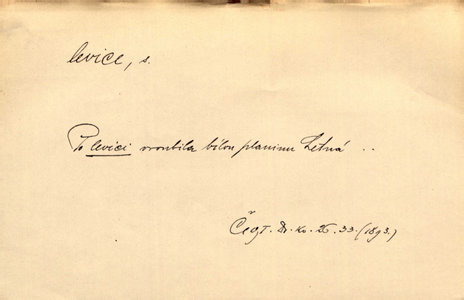 levice, s.
Po levici vroubila bílou planinu Letná ..
Čeqt. Dr. ko. 26. 33. (1893.)